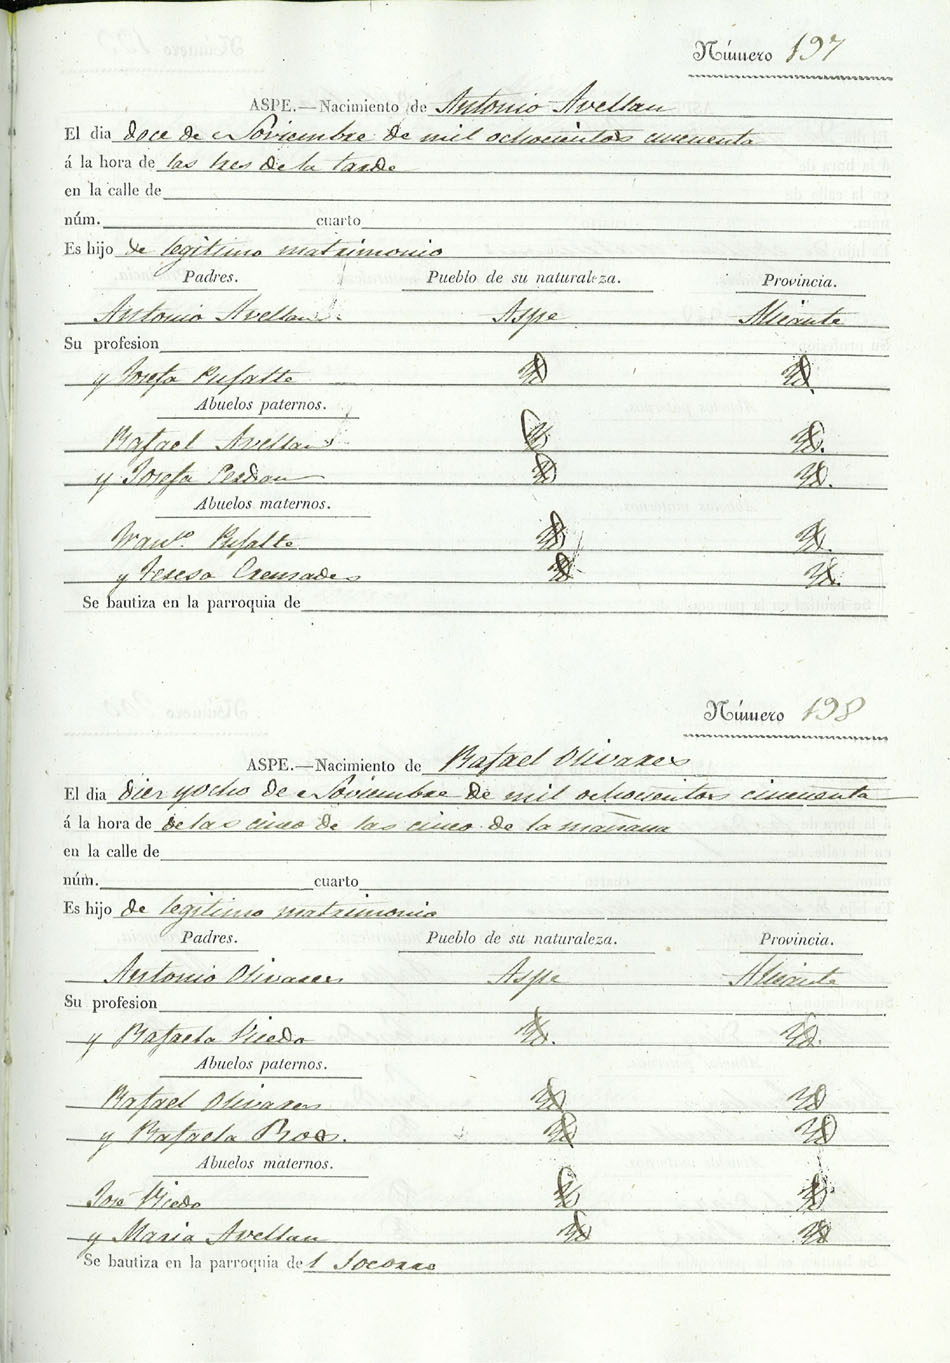 Número 197
ASPE.—Nacimiento de Antonio Avellan
El dia doce de Noviembre de mil ochocientos cincuenta
á la hora de las tres de la tarde
en la calle de
núm. cuarto
Es hijo de legitimo matrimonio
Padres. Pueblo de su naturaleza. Provincia.
Antonio Avellan Aspe Alicante
Su profesion
y Josefa Pufalte Yd Yd
Abuelos paternos.
Rafael Avellan Yd Yd.
y Josefa Cerdan Yd Yd.
Abuelos maternos.
Franco. Pufalte Yd Yd.
y Teresa Cremades Yd Yd.
Se bautiza en la parroquia de
Número 198
ASPE.—Nacimiento de Rafael Olivares
El dia diez y ocho de Noviembre de mil ochocientos cincuenta
á la hora de de las cinco de las cinco de la mañana
en la calle de
núm. cuarto
Es hijo de legitimo matrimonio
Padres. Pueblo de su naturaleza. Provincia.
Antonio Olivares Aspe Alicante
Su profesion
y Rafaela Vicedo Yd. Yd.
Abuelos paternos.
Rafael Olivares Yd Yd
y Rafaela Yd Yd
Abuelos maternos.
José Vicedo Yd Yd
y Maria Avellan Yd Yd
Se bautiza en la parroquia del Socorro